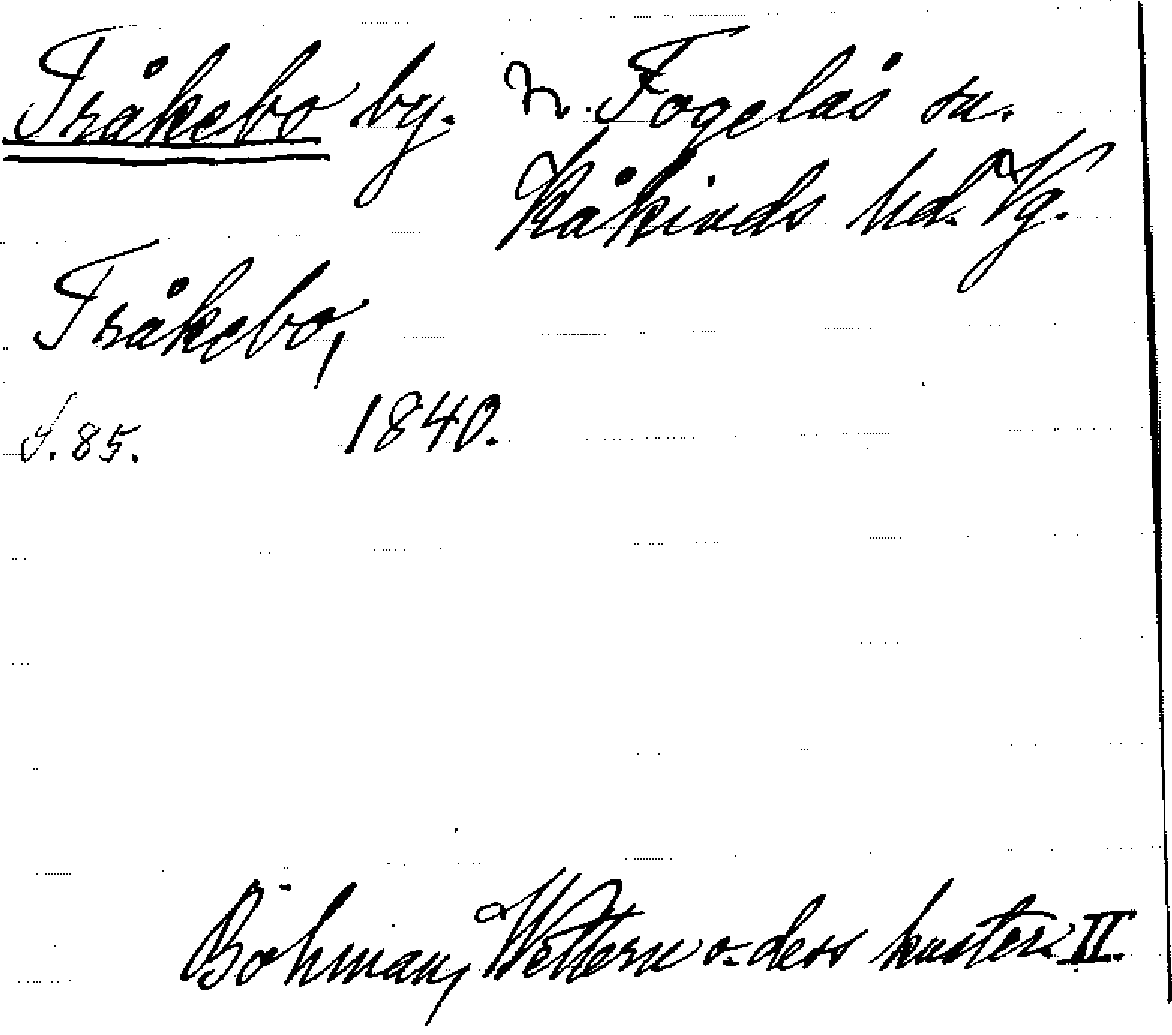 Tråkebo by. N. Fogelås sn.
Kåkinds hd. Vg.
Tråkebo,
s. 85. 1840.
Böhman, Wettern o. dess kuster II.